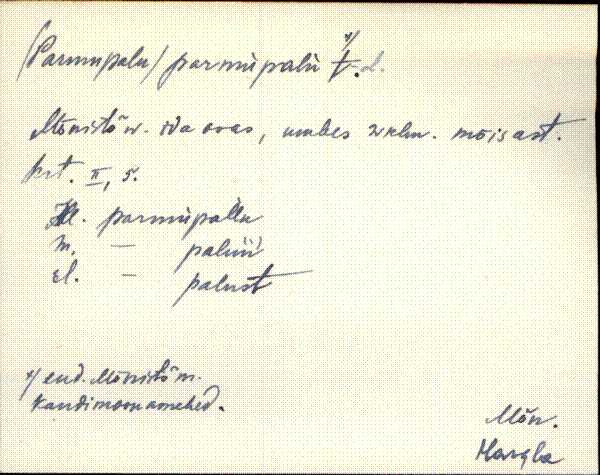 (Parmupalu) parmùpalù x/ t. d.
Mõnistõ w. ida osas, umbes 2 klm. mõisast.
krt. II, 5.
Ill. parmùpallu
In. — paluil
El. — palust
x/ end. Mõnistõ m.
kandimoonamehed.
Mõn.
Hargla